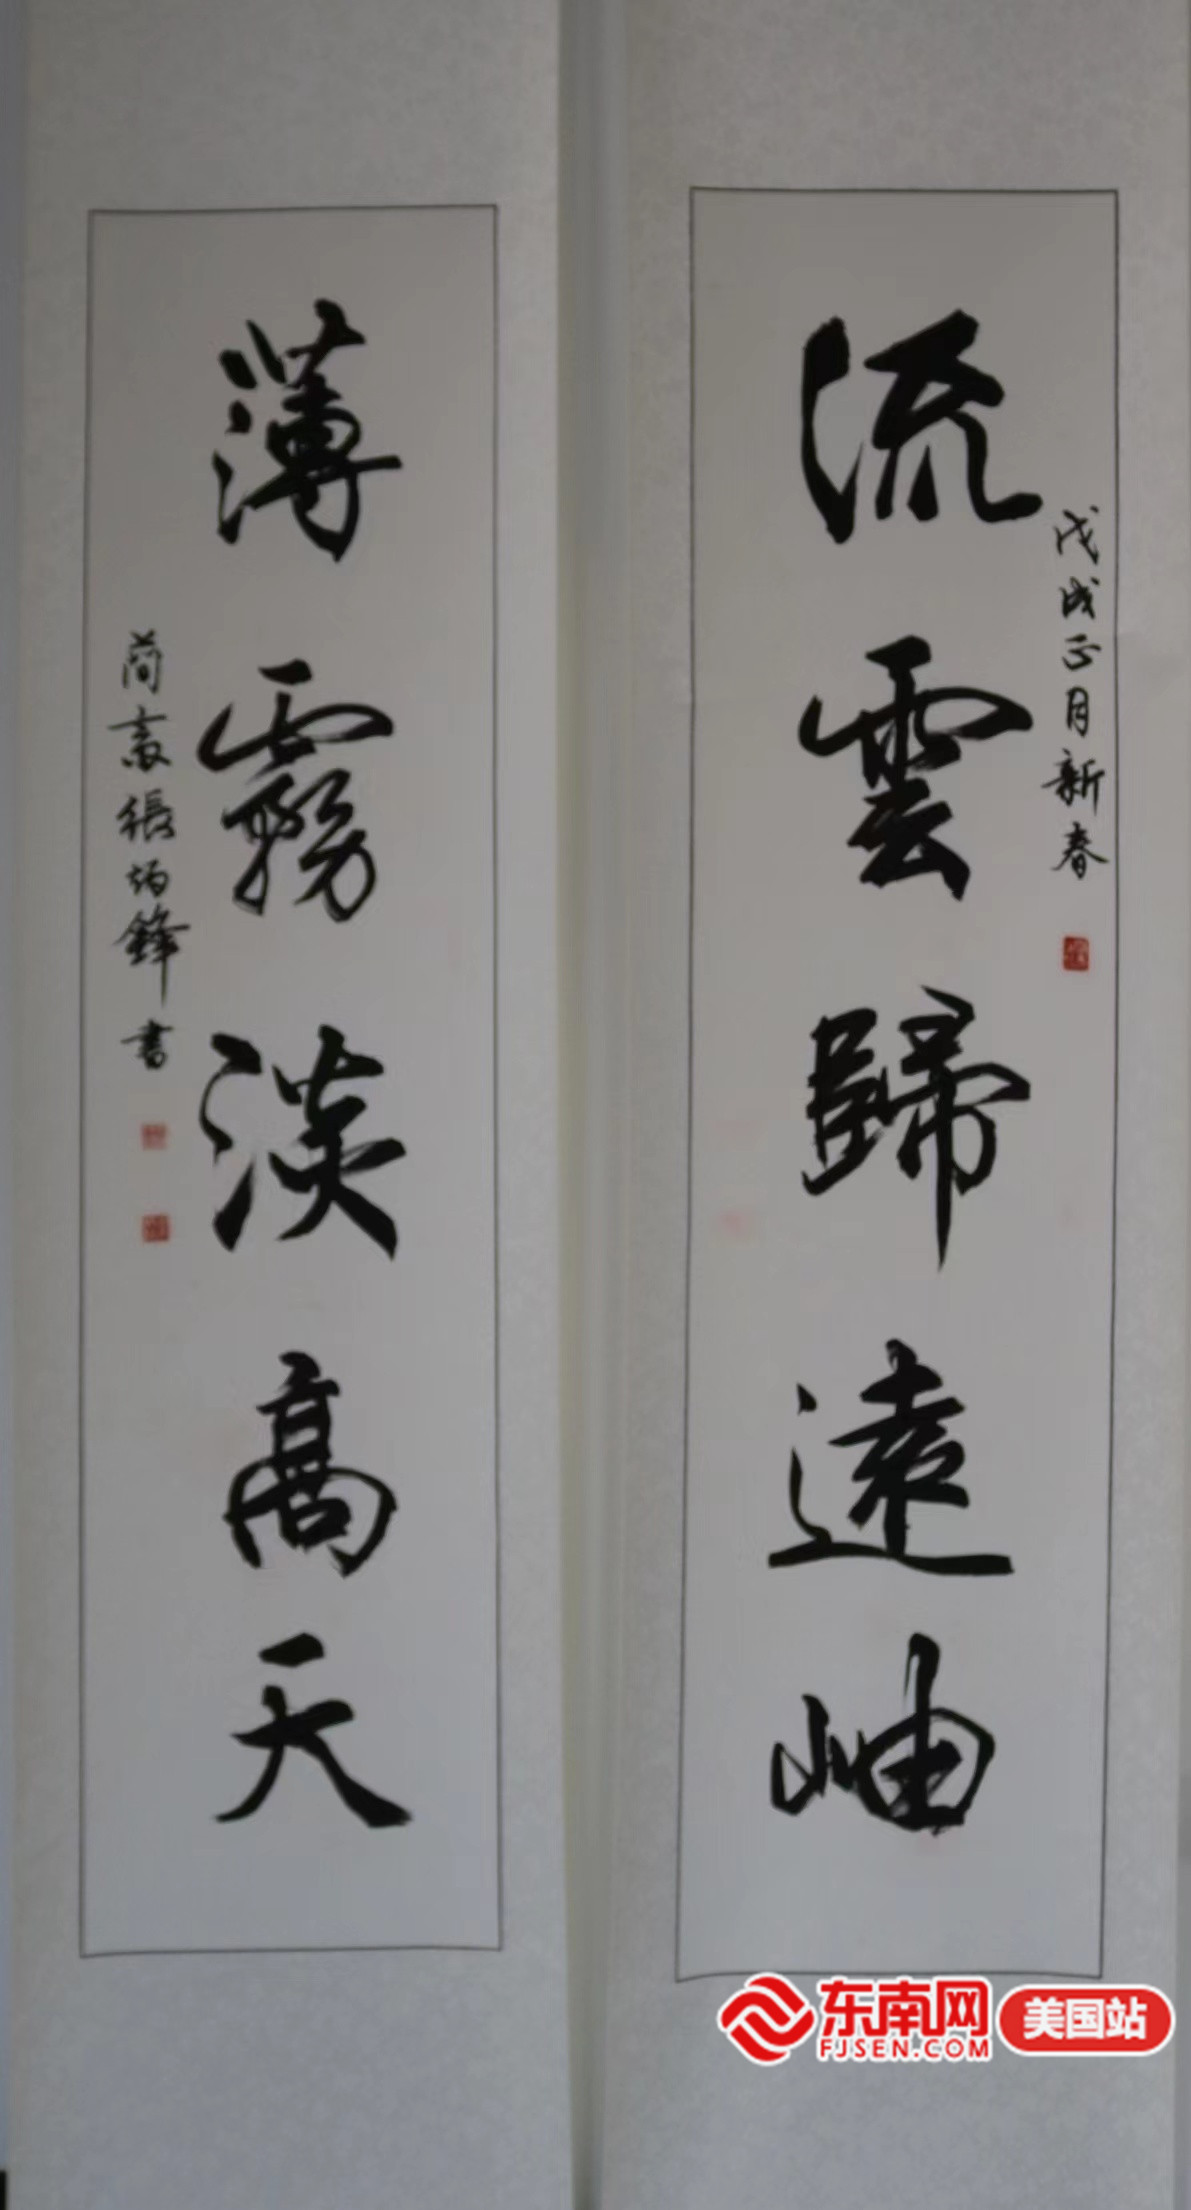 流雲歸遠岫
戊戌正月新春
薄霧淡高天
張炳鋒書
东南网
FJSEN.COM
美国站